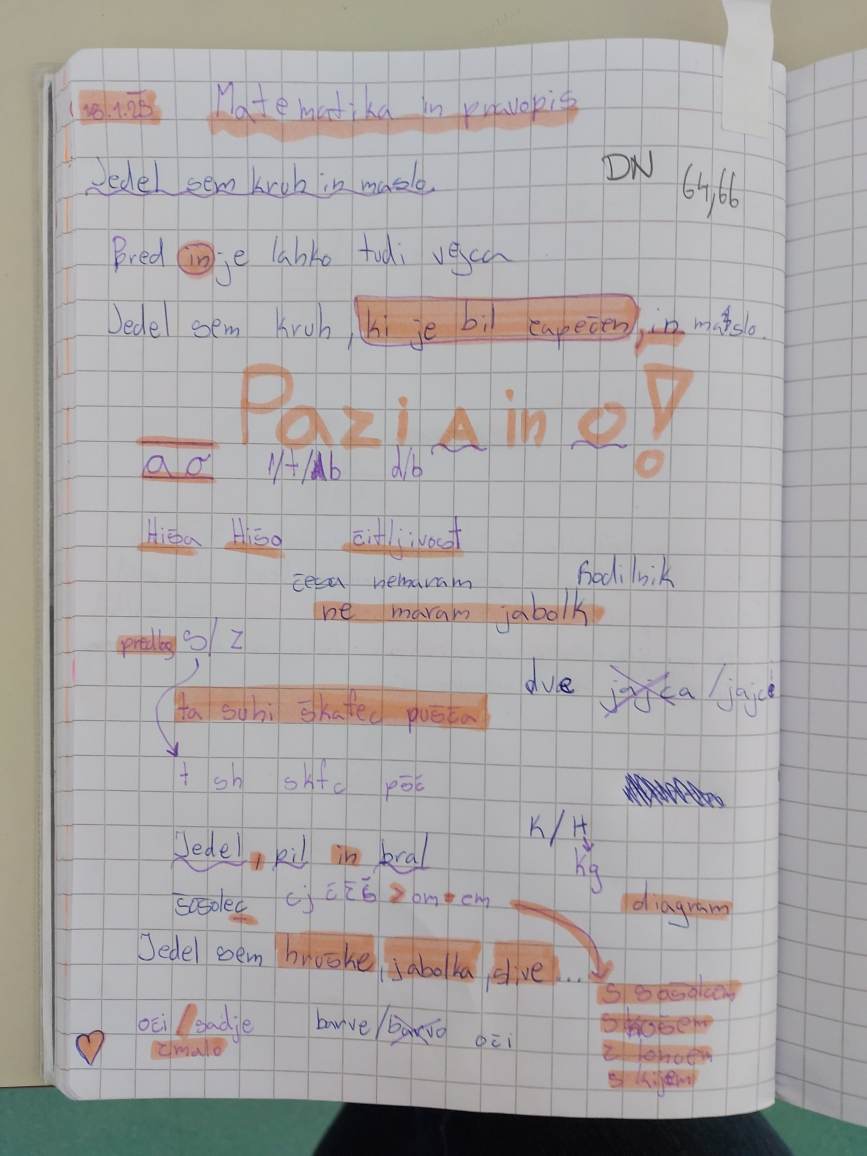 18.1.23 Matematika in pravopis
Jedel sem kruh in maslo.
DN 64,66
Pred in je lahko tudi vejca
Jedel sem kruh, ki je bil zapečen, in maslo.
Pazi A in O!
a o 1/t/ b d/b
Hiša Hišo čitljivost
česa nemaram Rodilnik
ne maram jabolk
predlog S/Z
dve jajca/jajci
ta suhi škafec pušča
t sh škfc pšč
K/H
Jedel, pil in bral
kg
sošolec cj čžš > om → em diagram
Jedel sem hruške, jabolka, slive...
s sošolcem
oči/sadje barve/barvo oči
s košem
z malo
z loncem
s kijem